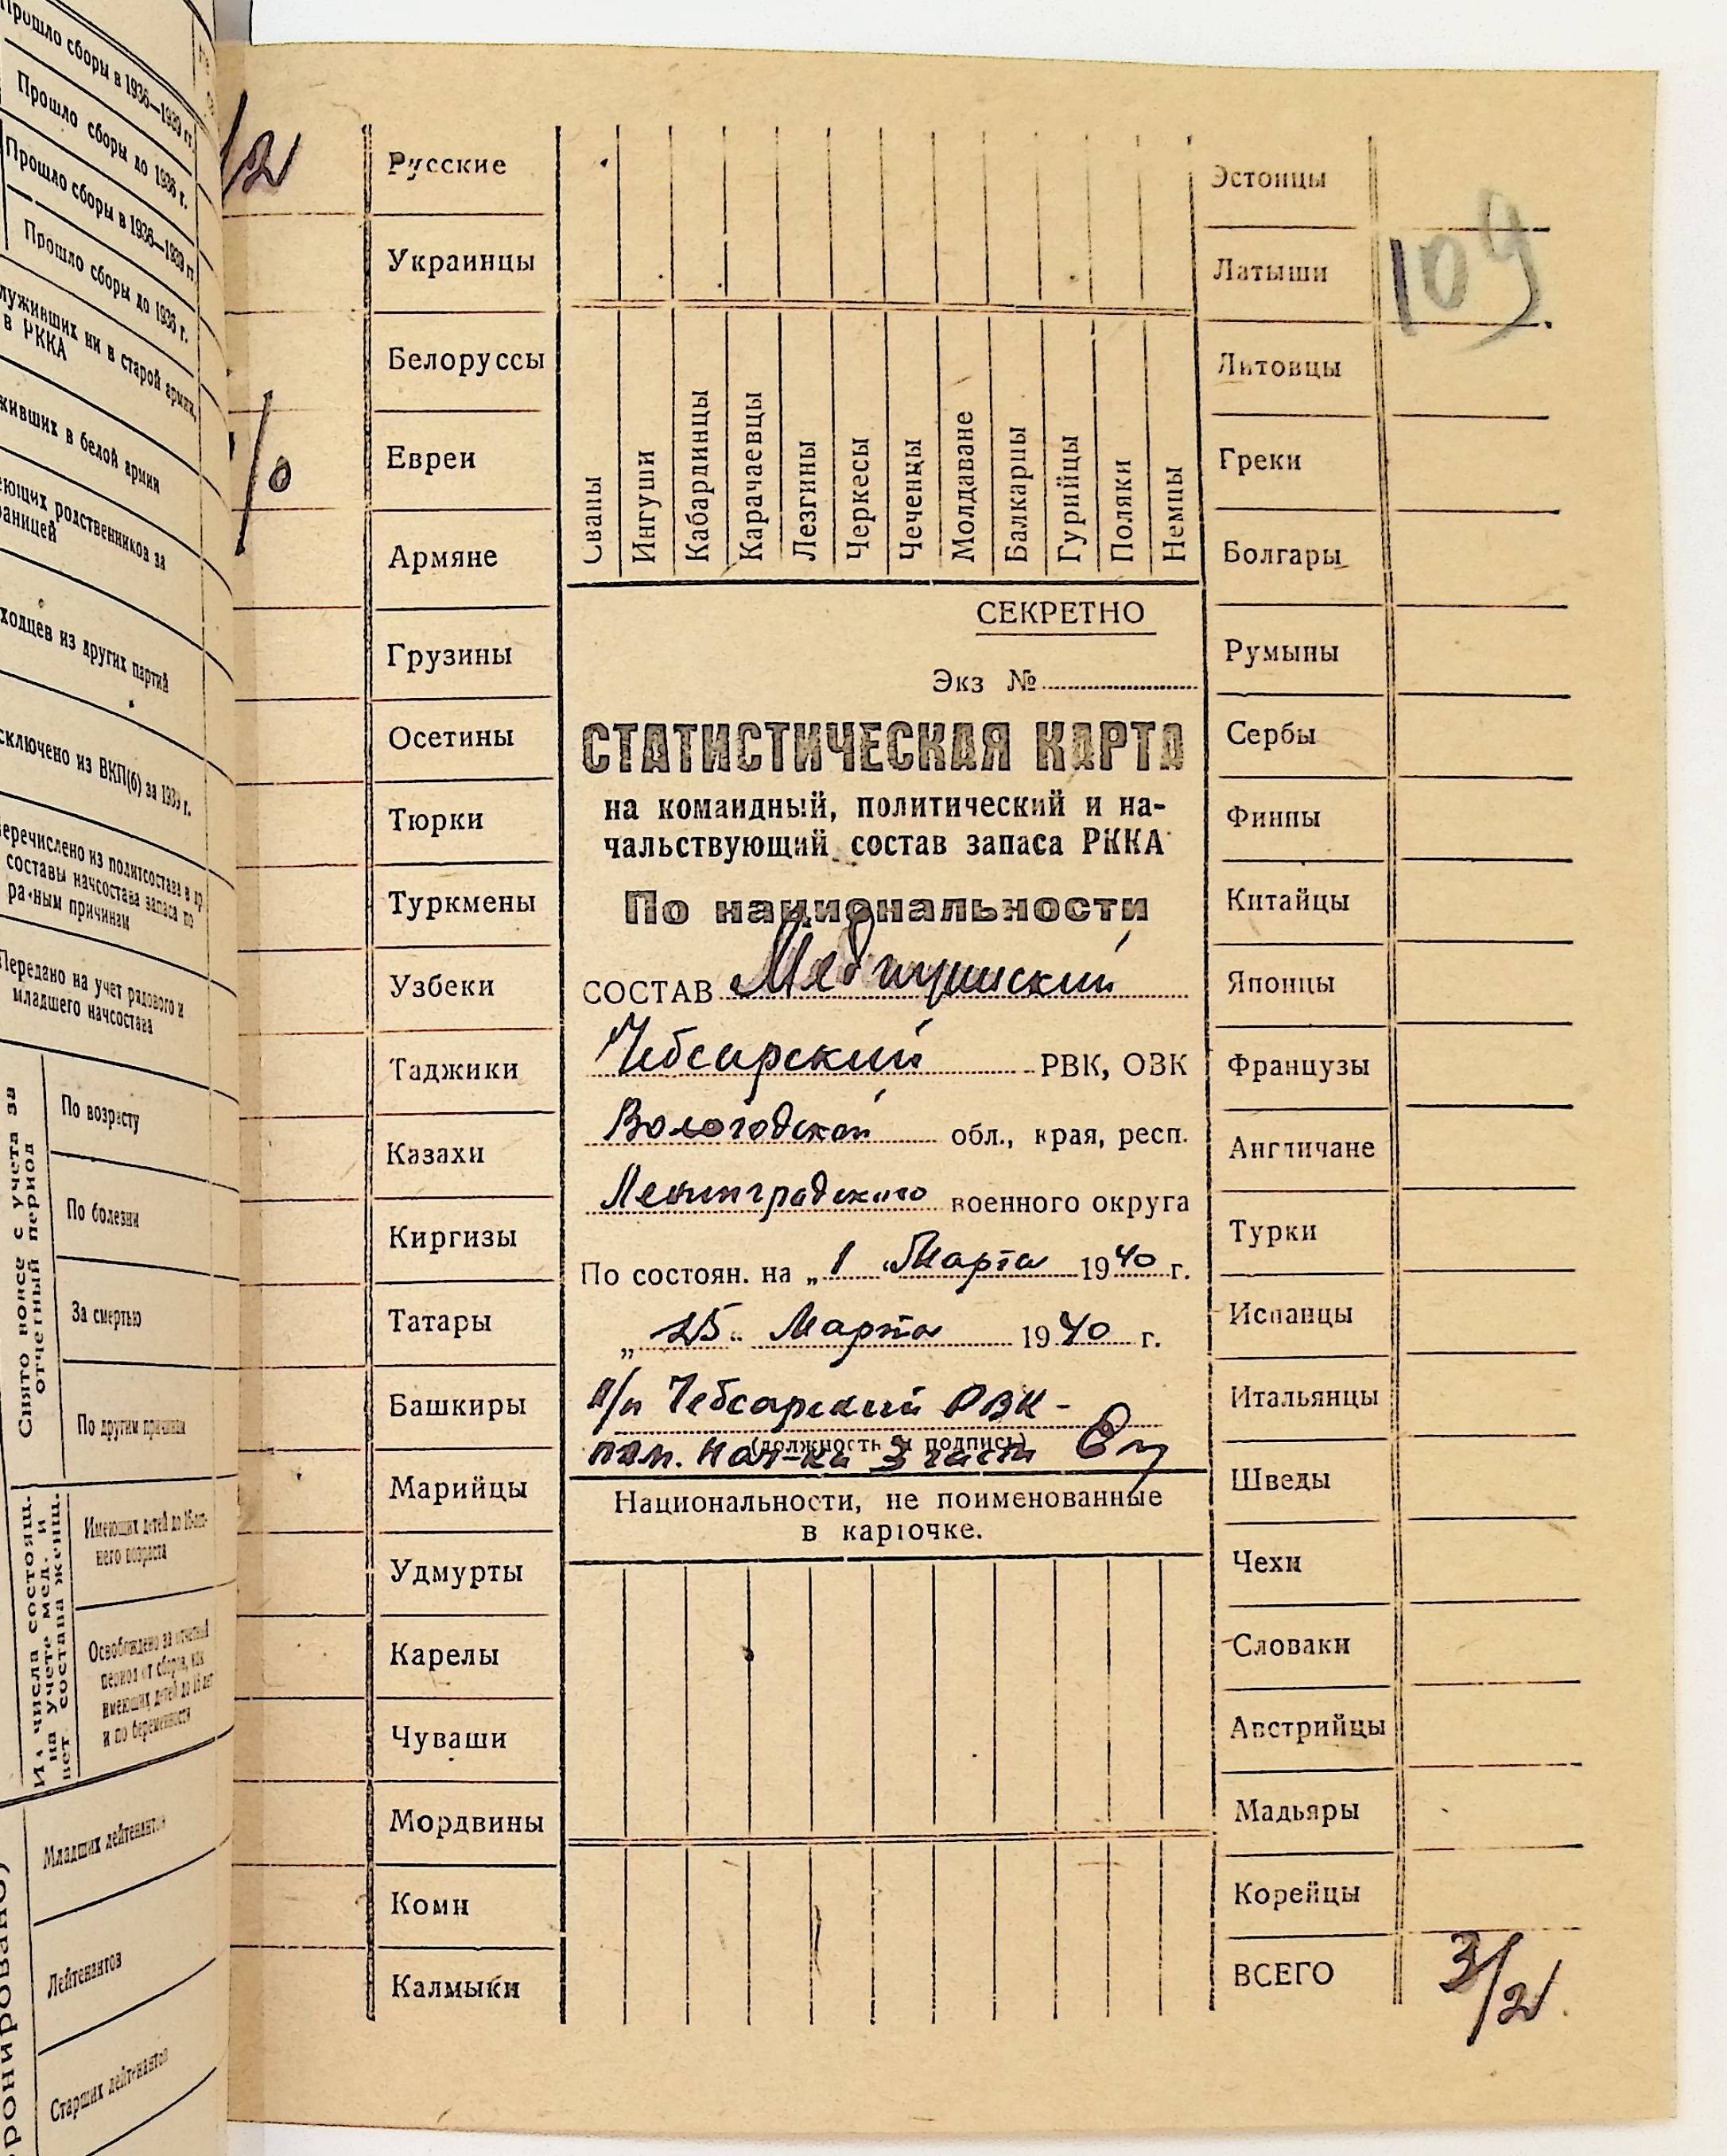 Прошло сборы в 1936—1939 гг.
Прошло сборы до 1936 г.
Прошло сборы в 1936—1939 гг
Прошло сборы до 1936 г.
служивших ни в старой армии,
в РККА
живших в белой армии
еющих родственников за
раницей
ходцев из других партий
сключено из ВКП(б) за 1939 г.
еречислено из политсостава в др
составы начсостава запаса по
разным причинам
Передано на учет рядового и
младшего начсостава
Снято
с учета за
отчетный период
По возрасту
По болезни
За смертью
По другим причинам
Из числа состоящ.
на учете мед. и
вет. состава женщ.
Имеющих детей до 16-лет-
него возраста
Освобождено за отчетный
период от сборов, как
имеющих детей до 16 лет
и по беременности
Младших лейтенантов
Лейтенантов
Старших лейтенантов
/2
Русские
Украинцы
Белоруссы
1/0
Евреи
Армяне
Грузины
Осетины
Тюрки
Туркмены
Узбеки
Таджики
Казахи
Киргизы
Татары
Башкиры
Марийцы
Удмурты
Карелы
Чуваши
Мордвины
Коми
Калмыки
Сваны
Ингуши
Кабардинцы
Карачаевцы
Лезгины
Черкесы
Чеченцы
Молдаване
Балкарцы
Гурийцы
Поляки
Немцы
СЕКРЕТНО
Экз №
СТАТИСТИЧЕСКАЯ КАРТА
на командный, политический и на-
чальствующий состав запаса РККА
По национальности
СОСТАВ Медицинский
Чебсарский РВК, ОВК
Вологодской обл., края, респ.
Ленинградского военного округа
По состоян. на „1 " Марта 1940 г.
„ 25 " Марта 1940 г.
п/п Чебсарский РВК -
(должность и подпись)
пом. нач-ка 3 части
Национальности, не поименованные
в карточке.
Эстонцы
109
Латыши
Литовцы
Греки
Болгары
Румыны
Сербы
Финны
Китайцы
Японцы
Французы
Англичане
Турки
Испанцы
Итальянцы
Шведы
Чехи
Словаки
Австрийцы
Мадьяры
Корейцы
ВСЕГО 3/2